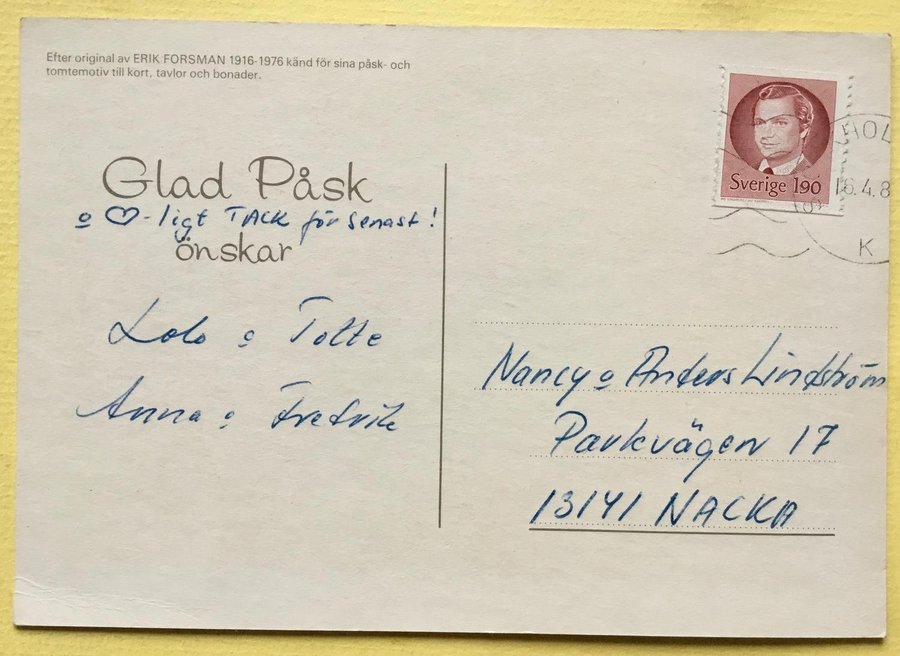 Efter original av ERIK FORSMAN 1916-1976 känd för sina påsk- och
tomtemotiv till kort, tavlor och bonader.
Glad Påsk
o ♡-ligt TACK för senast!
önskar
Lolo o Totte
Anna o Fredrik
Sverige 190
HOL
16.4.8
K
Nancy o Anders Lindström
Parkvägen 17
13141 NACKA